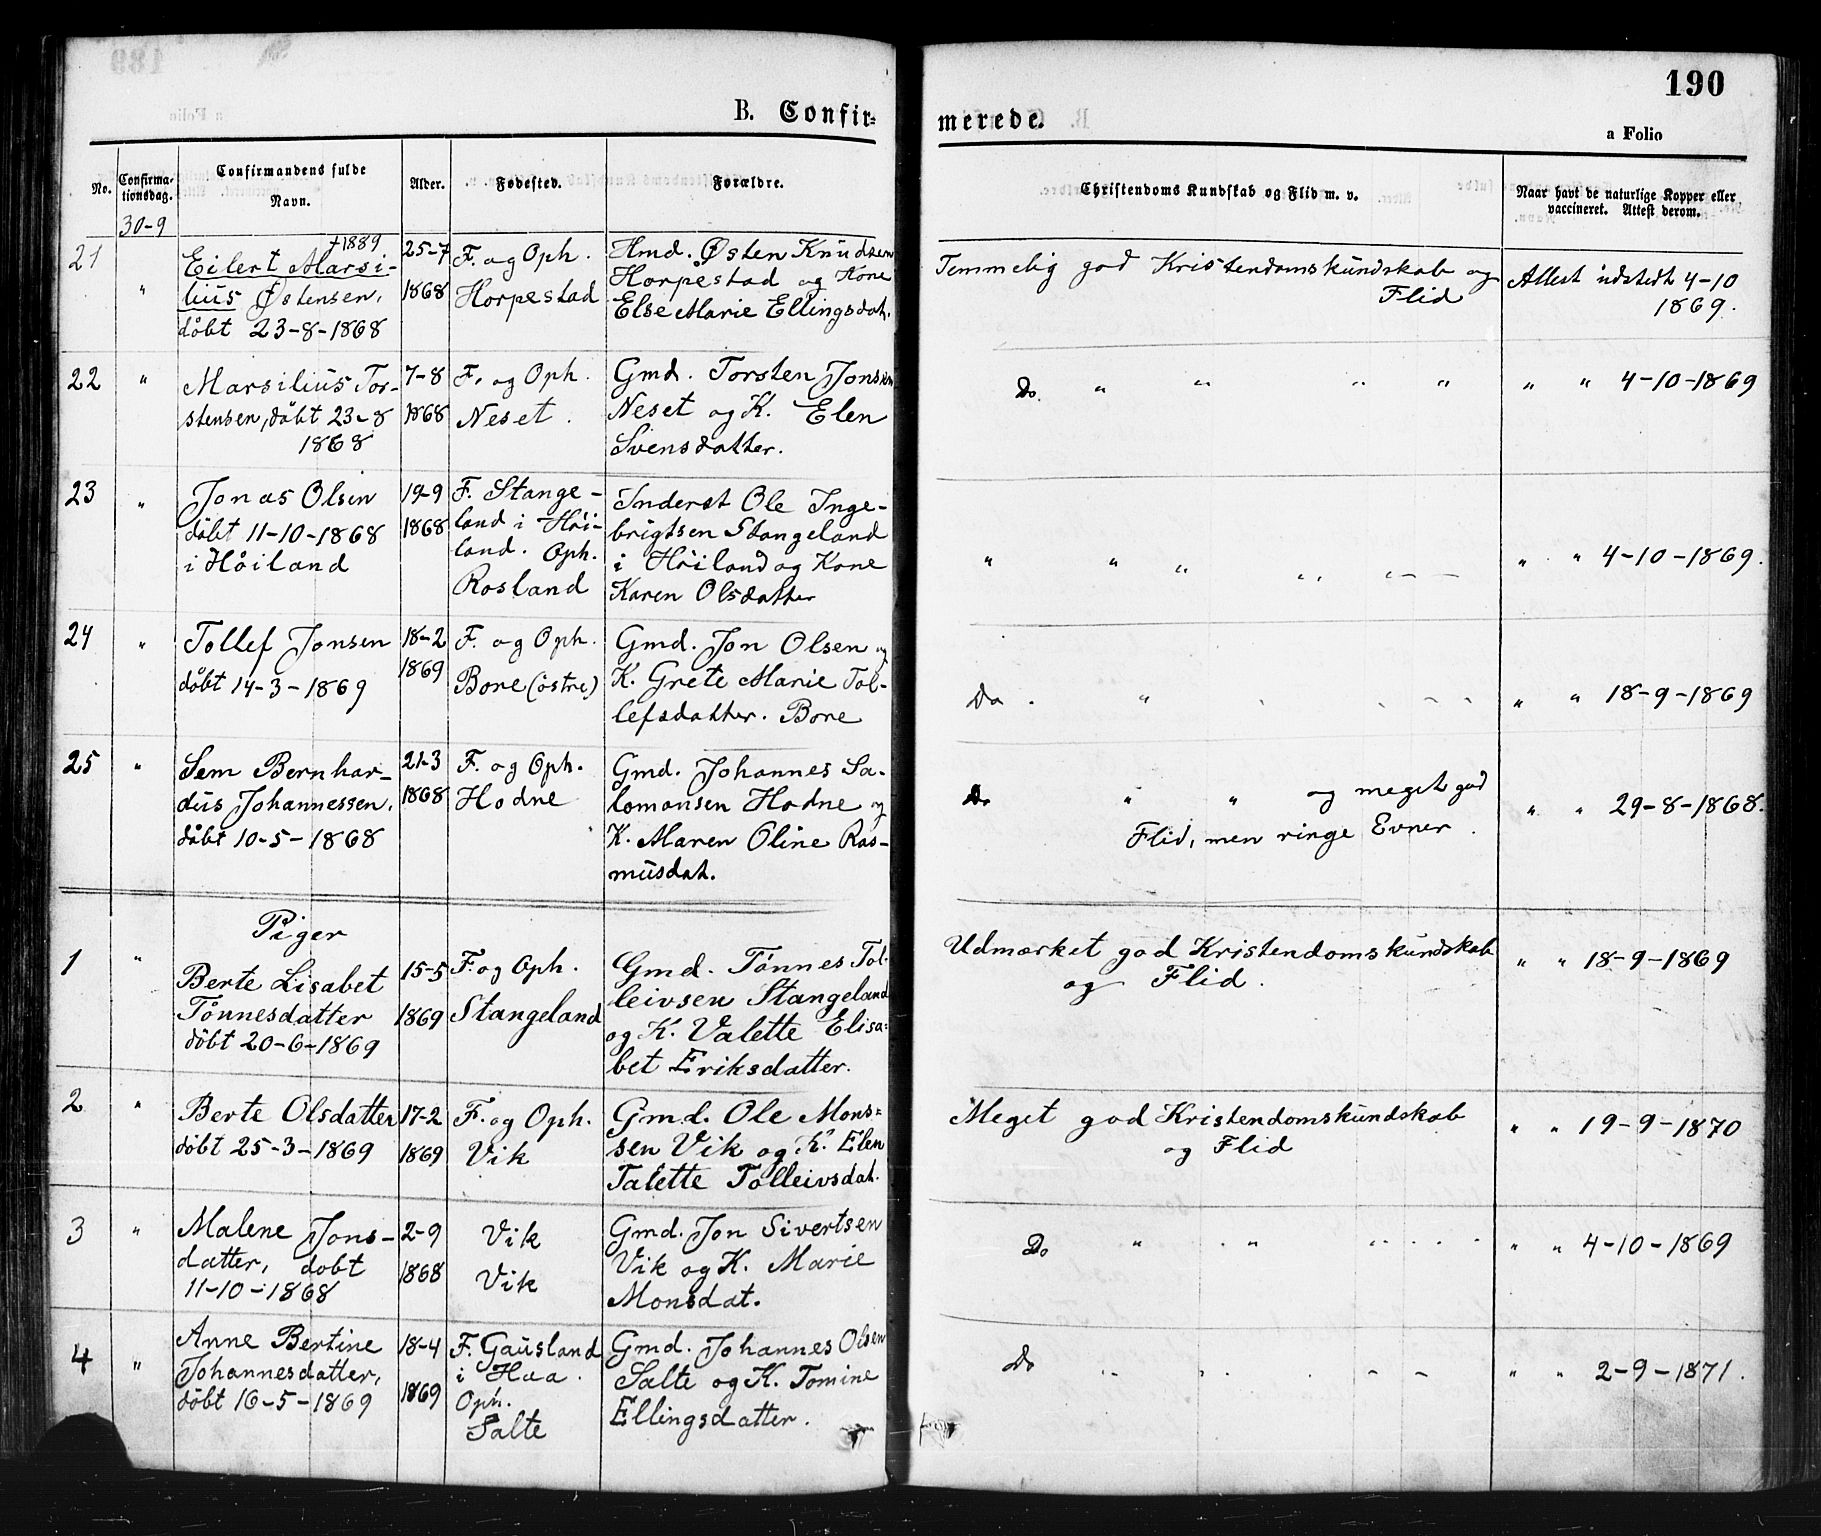 190
B. Confir-
merede.
a Folio
No.
Confirma-
tionsdag.
Confirmandens fulde
Navn.
Alder.
Fødested.
Forældre.
Christendoms Kundskab og Flid m. v.
Naar havt de naturlige Kopper eller
vaccineret. Attest derom.
30-9
21
"
†1889
Eilert Marsi-
lius Østensen,
döbt 23-8-1868
25-7
1868
F. og Oph.
Horpestad
Hmd. Østen Knudsen
Horpestad og Kone
Else Marie Ellingsdat.
Temmelig god Kristendomskundskab og
Flid
Attest udstedt 4-10
1869.
22
"
Marsilius Tor-
stensen, döbt 23-8
1868
7-8
1868
F. og Oph.
Neset.
Gmd. Torsten Jonsen
Neset og K. Elen
Svensdatter.
Do. " " " "
" " 4-10-1869
23
"
Jonas Olsen
döbt 11-10-1868
i Höiland
19-9
1868
F. Stange-
land i Höi-
land. Oph.
Rosland
Inderst Ole Inge-
brigtsen Stangeland
i Höiland og Kone
Karen Olsdatter
" " " " "
" " 4-10-1869.
24
"
Tollef Jonsen
döbt 14-3-1869
18-2
1869
F. og Oph.
Bore (östre)
Gmd. Jon Olsen og
K. Grete Marie Tol-
lefsdatter. Bore
Do. "
" " 18-9-1869
25
"
Sem Bernhar-
dus Johannessen,
döbt 10-5-1868
21-3
1868
F. og Oph.
Hodne
Gmd. Johannes Sa-
lomonsen Hodne og
K. Maren Oline Ras-
musdat.
Do " " og meget god
Flid, men ringe Evner.
" " 29-8-1868.
Piger
1
"
Berte Lisabet
Tönnesdatter
döbt 20-6-1869
15-5
1869
F. og Oph.
Stangeland
Gmd. Tönnes Tol-
leivsen Stangeland
og K. Valette Elisa-
bet Eriksdatter.
Udmærket god Kristendomskundskab
og Flid.
" " 18-9-1869
2
"
Berte Olsdatter
döbt 25-3-1869
17-2
1869
F. og Oph.
Vik
Gmd. Ole Mons-
sen Vik og K. Elen
Talette Tolleivsdat.
Meget god Kristendomskundskab
og Flid
" " 19-9-1870
3
"
Malene Jons-
datter, dobt
11-10-1868
2-9
1868
Vik
Vik
Gmd. Jon Sivertsen
Vik og K. Marie
Monsdat.
Do " "
" " 4-10-1869
4
"
Anne Bertine
Johannesdatter,
döbt 16-5-1869
18-4
1869
F. Gausland
i Haa.
Oph.
Salte
Gmd. Johannes Olsen
Salte og K. Tomine
Ellingsdatter.
Do "
" " 2-9-1871.